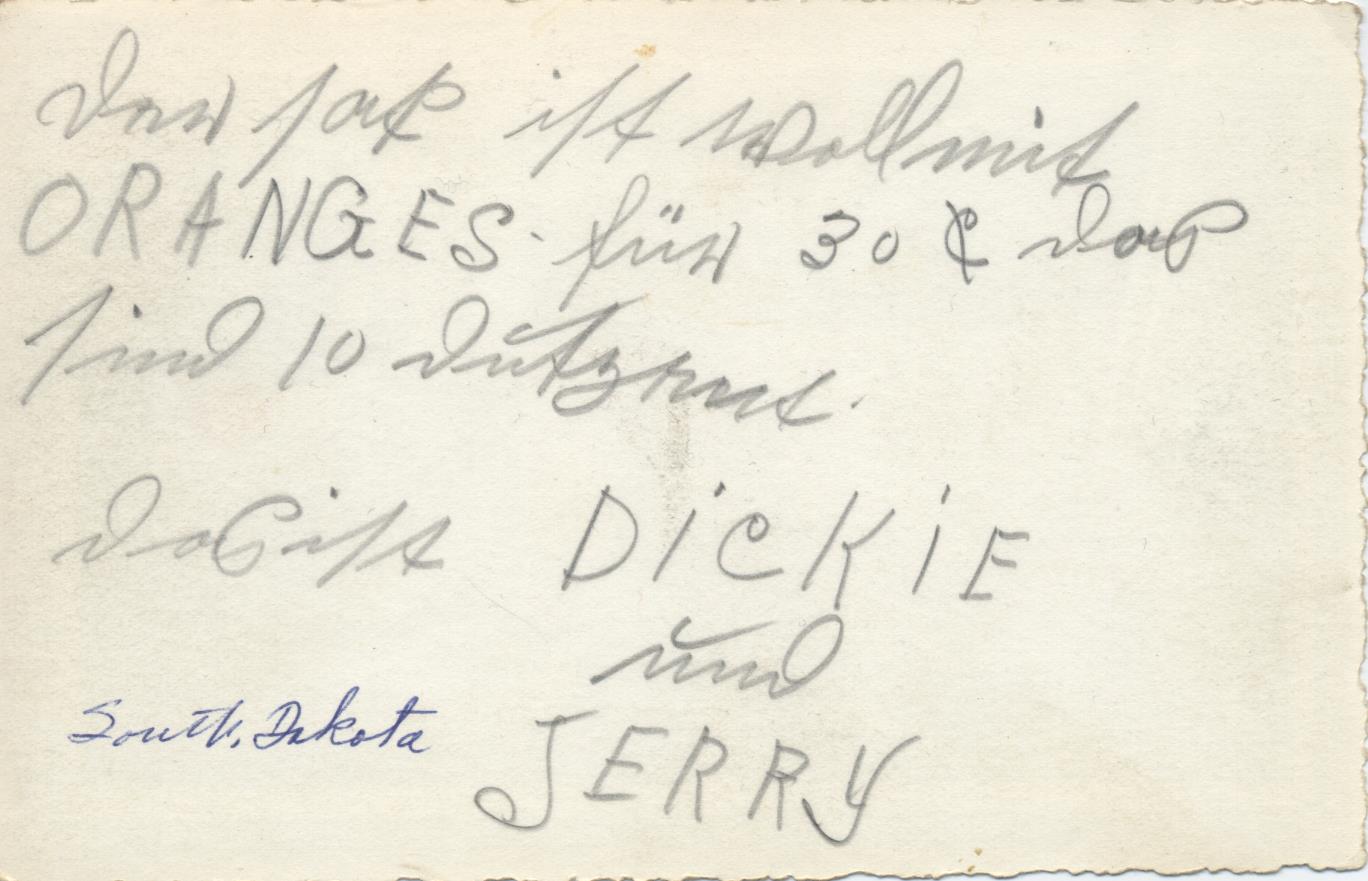 Der sack ist woll mit
ORANGES - für 30 ¢ das
sind 10 dutzent.
das ist DiCKiE
und
South, Dakota JERRY